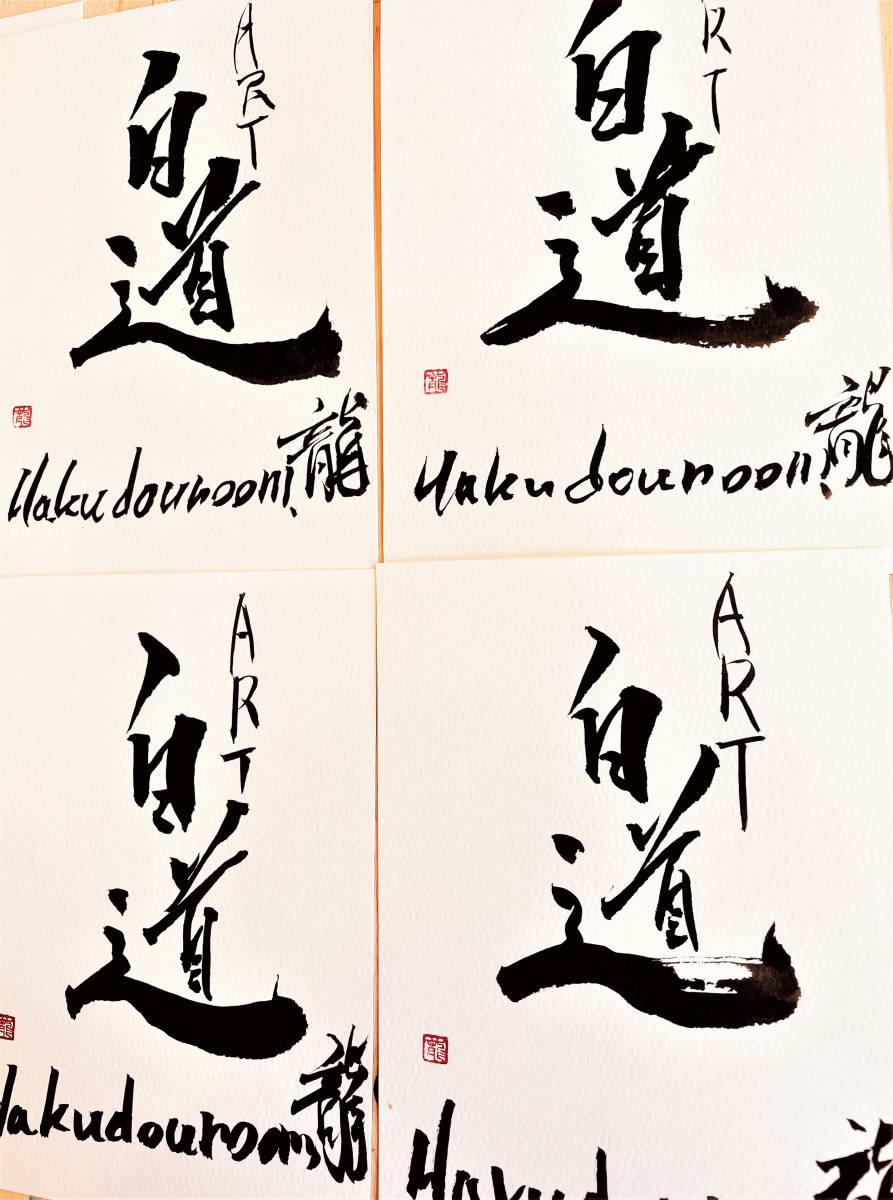 ART
白道
龍
Hakudouroom龍
RT
白道
龍
Hakudouroom龍
ART
白道
龍
Hakudouroom龍
ART
白道
龍
Hakudou